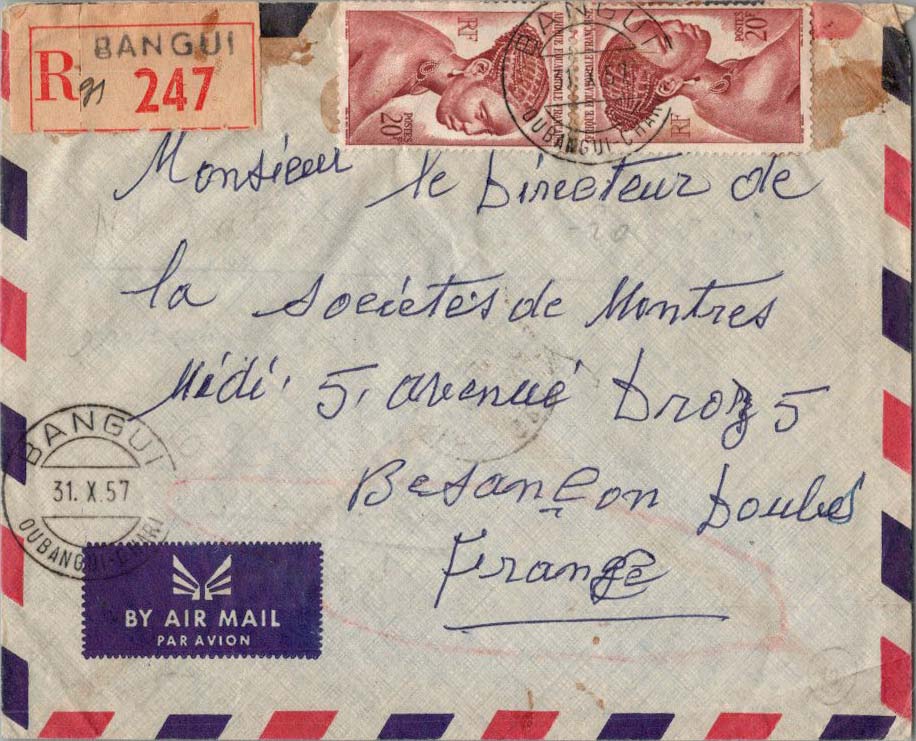 R BANGUI
91 247
RF
POSTES 20F
AFRIQUE ÉQUATORIALE FRANÇAISE
POSTES 20F
RF
AFRIQUE ÉQUATORIALE FRANÇAISE
BANGUI
31. X.57
OUBANGUI-CHARI
Monsieur le Directeur de
la Sociétés de Montres
Médi. 5, avenué Droz 5
Besançon Doubs
France
BANGUI
31. X.57
OUBANGUI-CHARI
BY AIR MAIL
PAR AVION